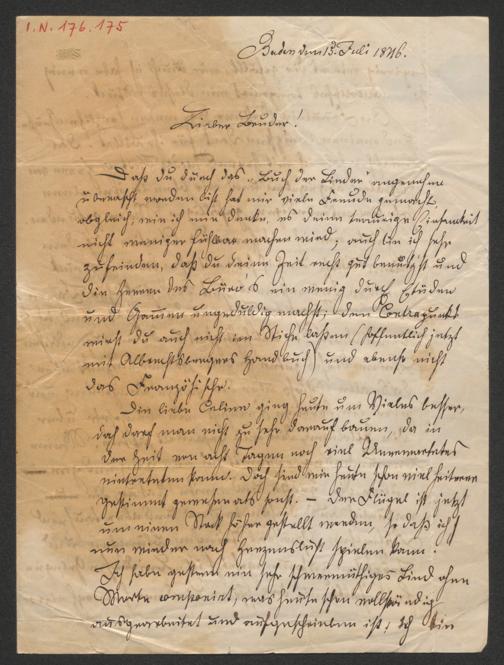 I.N. 176.175
Baden den 13. Juli 1846.
Lieber Bruder!
Daß du durch das „Buch der Lieder“ angenehm
überrascht worden bist hat mir viele Freude gemacht,
obgleich, wie ich mir denke, es deine traurige Einsamkeit
nicht weniger fühlbar machen wird; auch bin ich sehr
zufrieden, daß du deine Zeit recht gut benützest und
die Herren des Büro's ein wenig durch Etüden
und Gammen ungeduldig machst; den Contrapunkt
wirst du auch nicht im Stiche laßen (hoffentlich jetzt
mit Albrechtsbergers Handbuch) und ebenso nicht
das Französische.
Die liebe Celine ging heute um Vieles besser,
doch darf man nicht zu sehr darauf bauen, da in
der Zeit von acht Tagen noch viel Unerwartetes
eintreten kann. Doch sind wir heute schon viel heiterer
gestimmt gewesen als sonst. – Der Flügel ist jetzt
um einen Stock höher gestellt worden, so daß ich
nun wieder nach Herzenslust spielen kann.
Ich habe gestern ein sehr schwermüthiges Lied ohne
Worte componirt, was heute schon vollständig
ausgearbeitet und aufgeschrieben ist; Ich bin